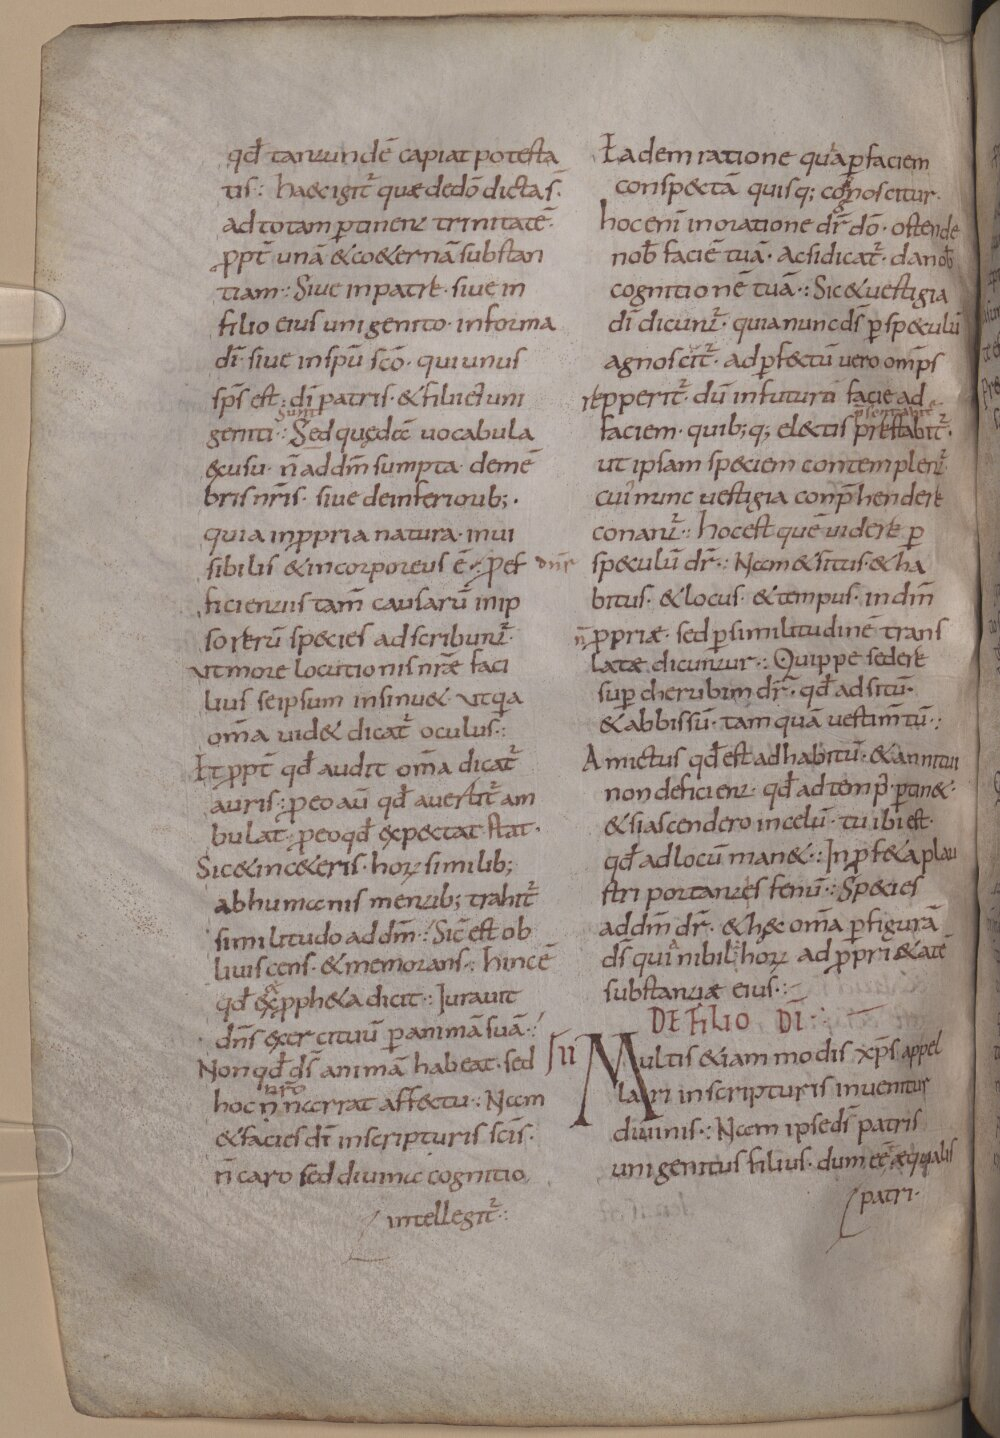 qđ tantundē capiat potesta
tis : haec igit̄ quae de dō dicta s̄
ad totam ꝑtinent trinitatē ·
ꝓpt̄ unā & co&ernā substan
tiam : Siue in patre · siue in
filio eius unigenito · in forma
dī · siue in spū scō · qui unus
sp̄s est : dī patris · & filii ei uni
geniti : Sed quędā uocabula
sunt
ex usu · n̄ ad dm̄ sumpta · de mē
bris nr̄is · siue de inferiorib; ·
quia in ꝓpria natura · inui
sibilis & incorporeus ē · ꝓ ef
ficientiis tam̄ causarū in ip
so rerū species adscribunt̄ ·
ut more locutionis nr̄ae faci
lius se ipsum insinu& ut qia
om̄a uid& dicat̄ oculus :
Et ꝓpt̄ qđ audit om̄a dicat̄
auris : ꝓ eo aū qđ auertit̄ am
bulat · ꝓ eo qđ expectat stat ·
Sic & in c&eris · horꝝ similib;
ab humanis mentib; trahit̄
similitudo ad dm̄ : Sic̄ est ob
liuiscens · & memorans : hinc ē
qđ & ꝓph&a dicit : Iurauit
dn̄s exercituū ꝑ animā suā :
Non qđ ds̄ animā habeat · sed
nr̄o
hoc n̄ narrat affectu : Nam
& facies dī in scripturis scīs ·
n̄ caro sed diuina cognitio
intellegit̄ :
Eadem ratione qua ꝑ faciem
conspectā quisq; cognoscitur ·
hoc enī in oratione dr̄ dō · ostende
nob̄ faciē tuā · ac si dicat̄ · da nob̄
cognitionē tuā : Sic & uestigia
dī dicunt̄ · quia nunc ds̄ ꝑ speculū
agnoscit̄ · ad ꝑfectū uero om̄ps
repperit̄ · dū in futurū facie ad
faciem · quib; q; electis prestabit̄ ·
ut ipsam speciem contemplent̄
cui nunc uestigia conp̄hendere
conant̄ : hoc est quē uidere ꝑ
speculū dr̄ : Nam & situs · & ha
bitus · & locus · & tempus · in dm̄
n̄ ꝓpriæ · sed ꝑ similitudinē trans
latæ dicuntur : Quippe sedere
suꝑ cherubim dr̄ · qđ ad sitū ·
& abbissū · tamquā uestim̄tū :
Amictus qđ est ad habitū · & anni tui
non deficient · qđ ad temp̄ · ꝑtin& ·
& si ascendero in celū · tu ibi est ·
qđ ad locū man& : In ꝓf&a plau
stri portantes fenū : Species
ad dm̄ dr̄ · & hęc om̄a ꝑ figurā
ds̄ qui nihil horꝝ ad ꝓpri&atē
substantiæ eius :
DE FILIO DĪ :
III Multis &iam modis xp̄s appel
lari in scripturis inuenitur
diuinis : Nam ipse dī patris
unigenitus filius · dum eē æqualis
patri ·